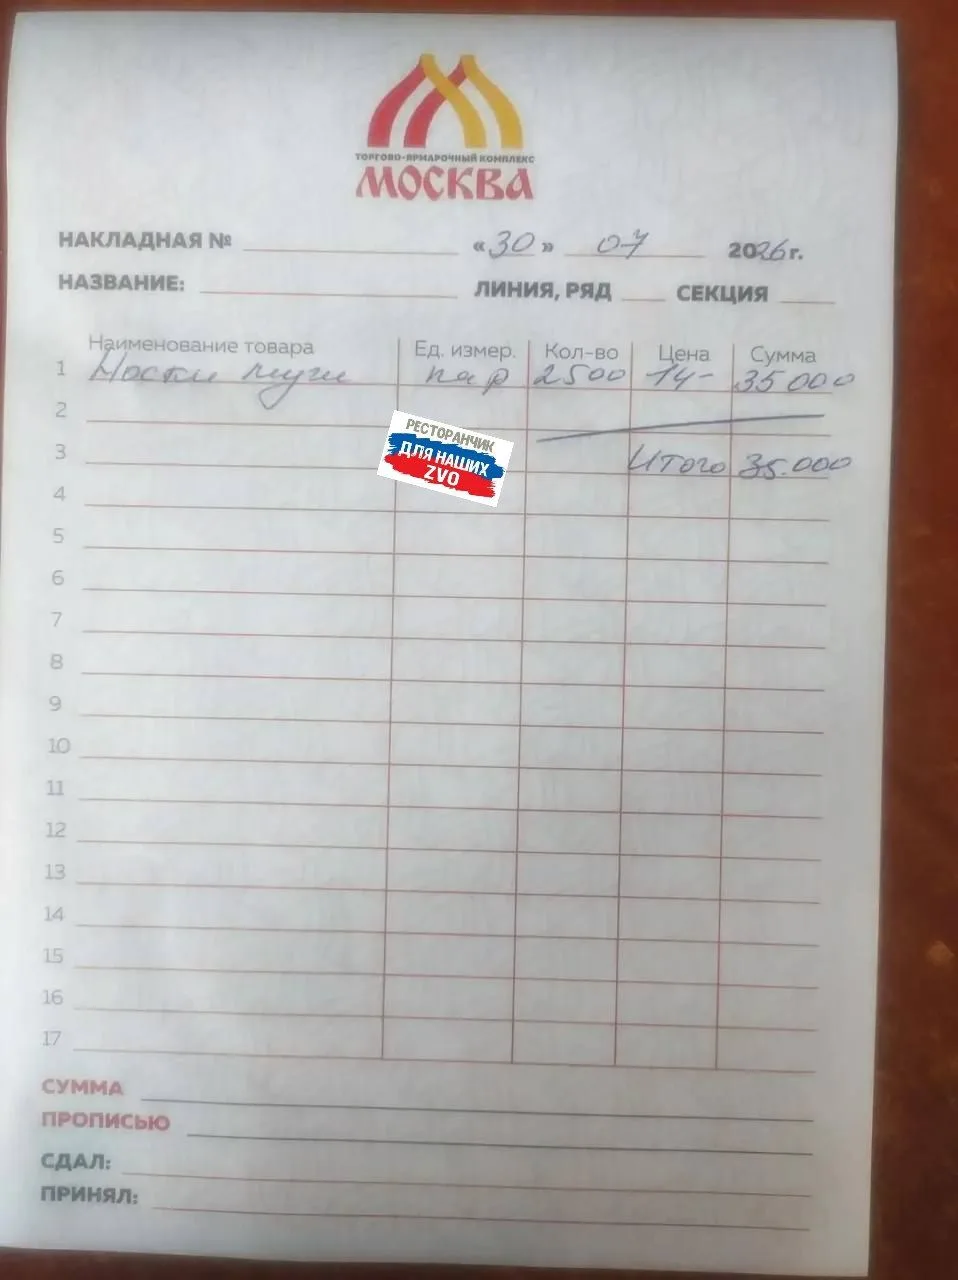 ТОРГОВО-ЯРМАРОЧНЫЙ КОМПЛЕКС
МОСКВА
НАКЛАДНАЯ № «30» 07 2026г.
НАЗВАНИЕ: ЛИНИЯ, РЯД СЕКЦИЯ
Наименование товара Ед. измер. Кол-во Цена Сумма
1 Носки пар 2500 14- 35000
2
РЕСТОРАНЧИК
ДЛЯ НАШИХ
ZVO
3 Итого 35.000
4
5
6
7
8
9
10
11
12
13
14
15
16
17
СУММА
ПРОПИСЬЮ
СДАЛ:
ПРИНЯЛ: